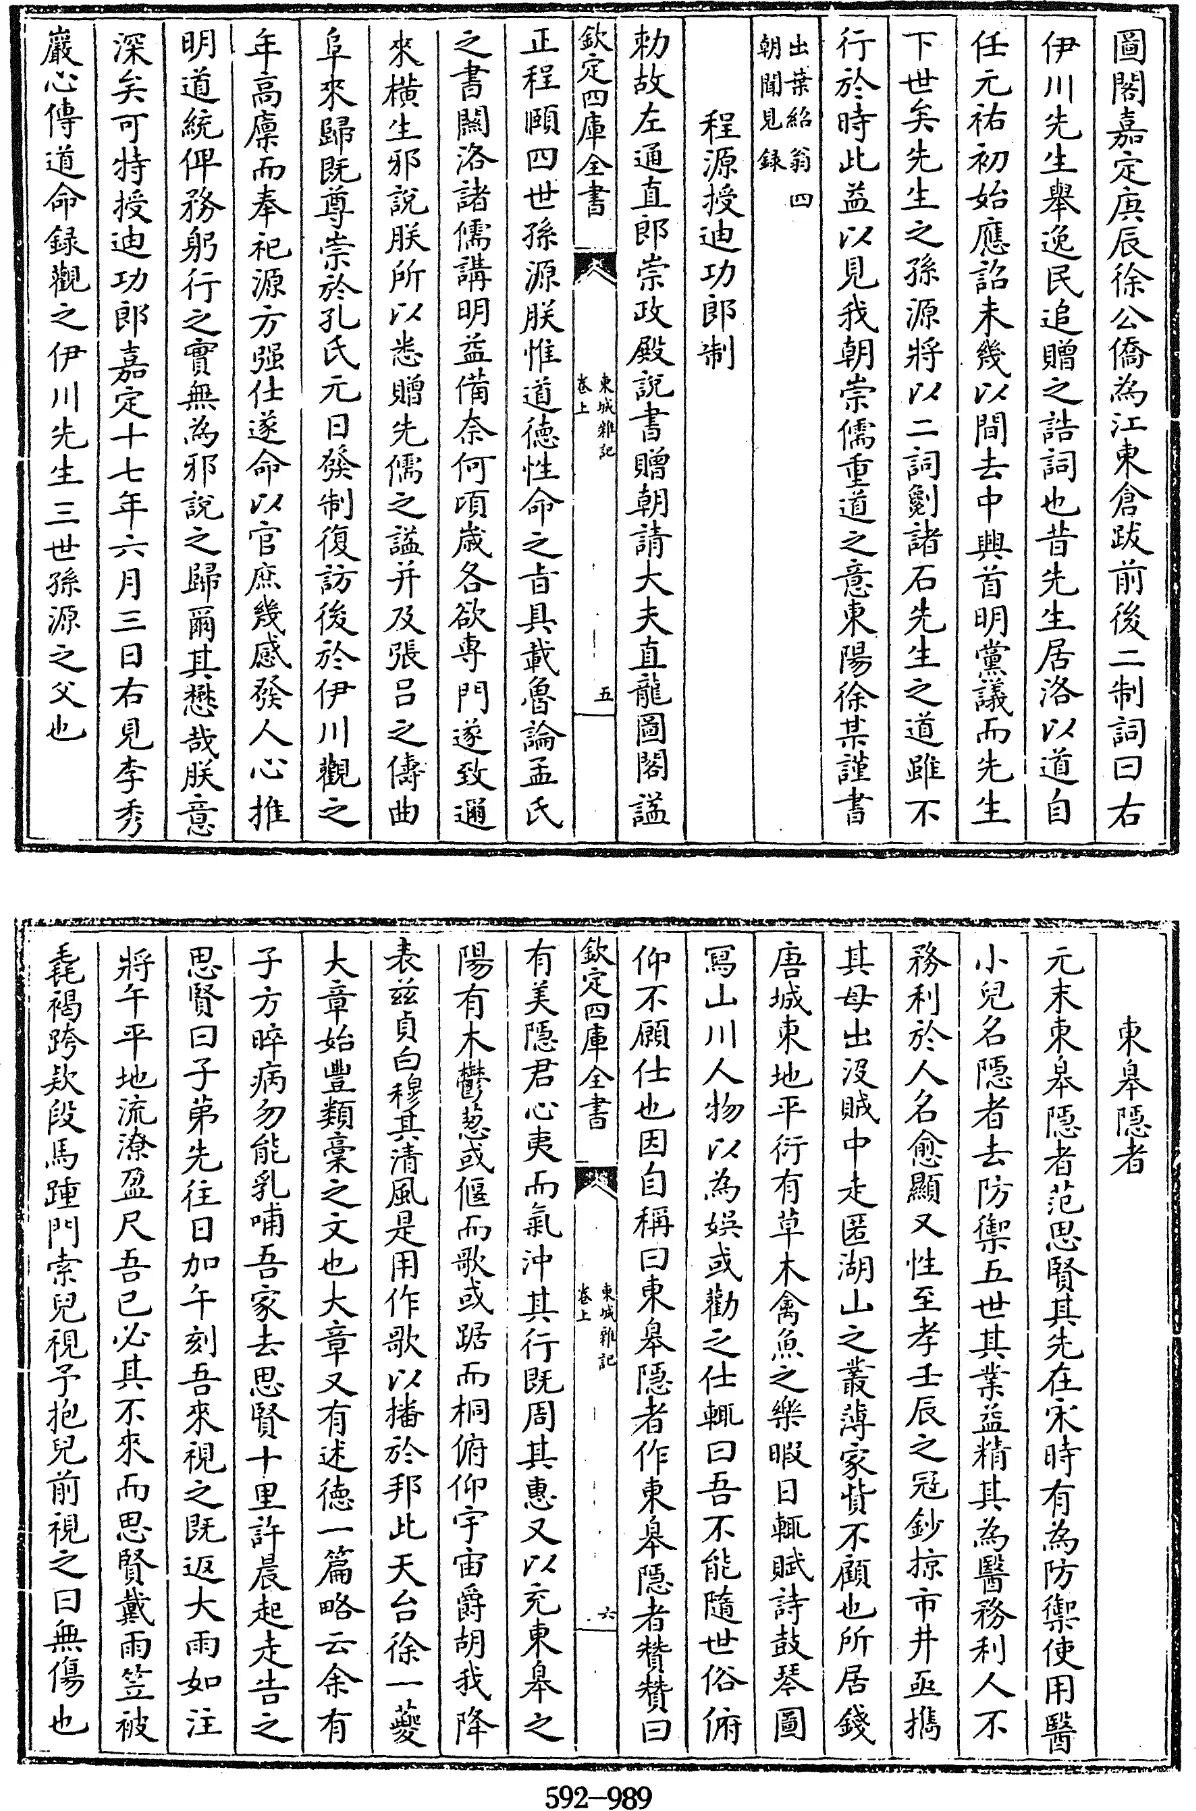 圖閣嘉定庚辰徐公僑為江東倉跋前後二制詞曰右
伊川先生舉逸民追贈之誥詞也昔先生居洛以道自
任元祐初始應詔未幾以間去中興首明黨議而先生
下世矣先生之孫源將以二詞劖諸石先生之道雖不
行於時此益以見我朝崇儒重道之意東陽徐某謹書
出葉紹翁四
朝聞見錄
程源授迪功郎制
勅故左通直郎崇政殿說書贈朝請大夫直龍圖閣諡
欽定四庫全書
東城雜記
卷上
五
正程頤四世孫源朕惟道德性命之旨具載魯論孟氏
之書關洛諸儒講明益備奈何頃歲各欲專門遂致邇
來橫生邪說朕所以悉贈先儒之諡并及張呂之儔曲
阜來歸既尊崇於孔氏元日發制復訪後於伊川觀之
年高廩而奉祀源方强仕遂命以官庶幾感發人心推
明道統俾務躬行之實無為邪說之歸爾其懋哉朕意
深矣可特授迪功郎嘉定十七年六月三日右見李秀
巖心傳道命録觀之伊川先生三世孫源之父也
東臯隱者
元末東臯隱者范思賢其先在宋時有為防禦使用醫
小兒名隱者去防禦五世其業益精其為醫務利人不
務利於人名愈顯又性至孝壬辰之冦鈔掠市井亟攜
其母出沒賊中走匿湖山之叢薄家貲不顧也所居錢
唐城東地平衍有草木禽魚之樂暇日輒賦詩鼓琴圖
寫山川人物以為娯或勸之仕輒曰吾不能隨世俗俯
仰不願仕也因自稱曰東臯隱者作東臯隱者贊贊曰
欽定四庫全書
東城雜記
卷上
六
有美隱君心夷而氣沖其行既周其惠又以充東臯之
陽有木鬱葱或偃而歌或踞而桐俯仰宇宙爵胡我降
表兹貞白穆其清風是用作歌以播於邦此天台徐一夔
大章始豐類稾之文也大章又有述德一篇略云余有
子方晬病勿能乳哺吾家去思賢十里許晨起走告之
思賢曰子第先往日加午刻吾來視之既返大雨如注
將午平地流潦盈尺吾已必其不來而思賢戴雨笠被
毳褐跨欵段馬踵門索兒視予抱兒前視之曰無傷也
592-989